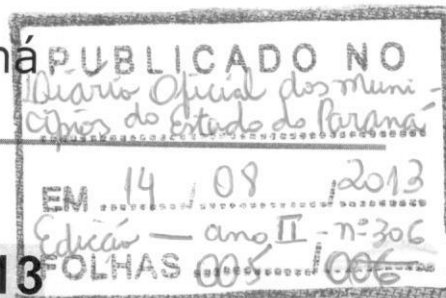 ná
PUBLICADO NO
Diário Oficial dos Muni-
cípios do Estado do Paraná
EM 14 / 08 / 2013
Edição — ano II - nº 306
13
FOLHAS 005 / 006